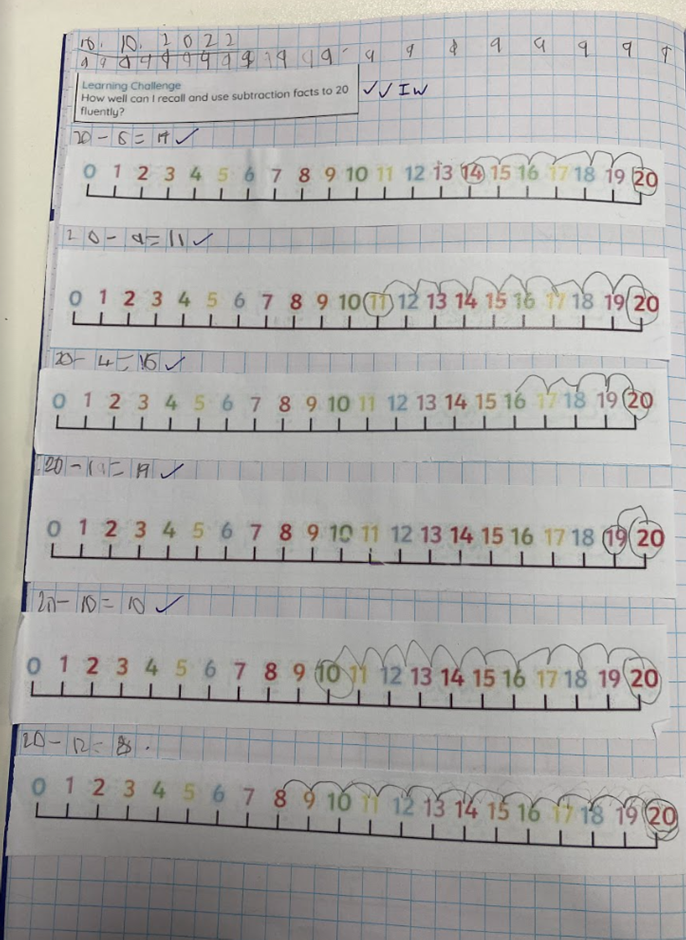 10. 10. 2022
9 9 9 9 9 9 9 9 9 9 9 9 9 9 9 9 9 9 9 9
Learning Challenge
How well can I recall and use subtraction facts to 20
fluently?
✓✓ IW
20 - 6 = 14 ✓
0 1 2 3 4 5 6 7 8 9 10 11 12 13 14 15 16 17 18 19 20
20 - 9 = 11 ✓
0 1 2 3 4 5 6 7 8 9 10 11 12 13 14 15 16 17 18 19 20
20 - 4 = 16 ✓
0 1 2 3 4 5 6 7 8 9 10 11 12 13 14 15 16 17 18 19 20
20 - = 19 ✓
0 1 2 3 4 5 6 7 8 9 10 11 12 13 14 15 16 17 18 19 20
20 - 10 = 10 ✓
0 1 2 3 4 5 6 7 8 9 10 11 12 13 14 15 16 17 18 19 20
20 - 12 = 8 .
0 1 2 3 4 5 6 7 8 9 10 11 12 13 14 15 16 17 18 19 20